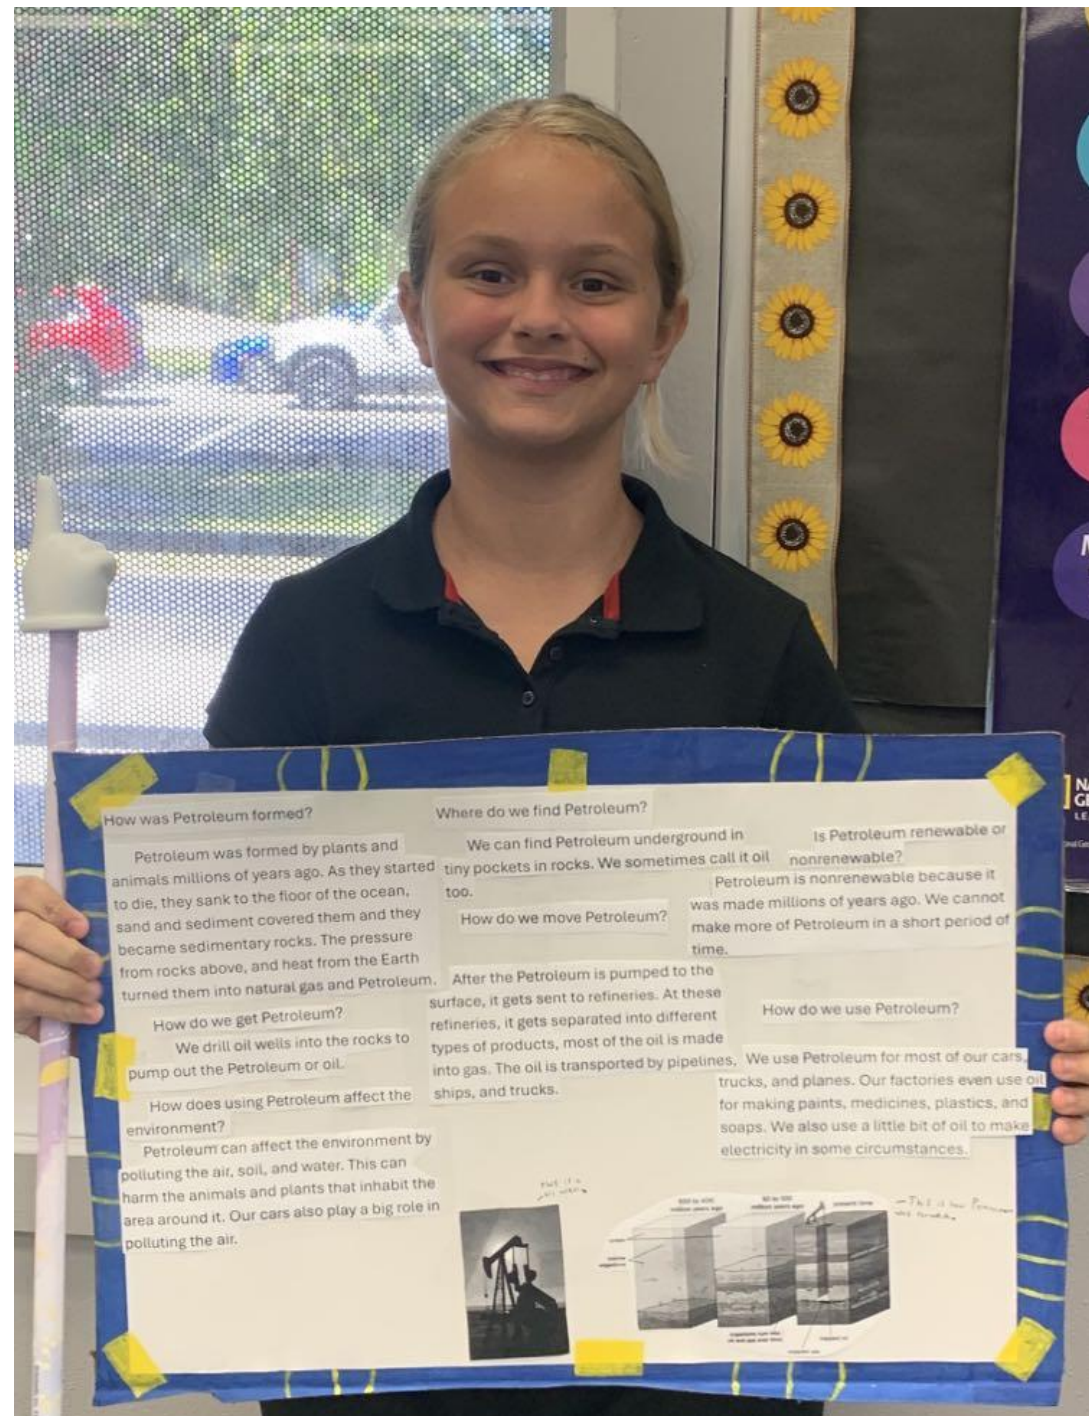 How was Petroleum formed?
Petroleum was formed by plants and
animals millions of years ago. As they started
to die, they sank to the floor of the ocean,
sand and sediment covered them and they
became sedimentary rocks. The pressure
from rocks above, and heat from the Earth
turned them into natural gas and Petroleum.
How do we get Petroleum?
We drill oil wells into the rocks to
pump out the Petroleum or oil.
How does using Petroleum affect the
environment?
Petroleum can affect the environment by
polluting the air, soil, and water. This can
harm the animals and plants that inhabit the
area around it. Our cars also play a big role in
polluting the air.
Where do we find Petroleum?
We can find Petroleum underground in
tiny pockets in rocks. We sometimes call it oil
too.
How do we move Petroleum?
After the Petroleum is pumped to the
surface, it gets sent to refineries. At these
refineries, it gets separated into different
types of products, most of the oil is made
into gas. The oil is transported by pipelines,
ships, and trucks.
Is Petroleum renewable or
nonrenewable?
Petroleum is nonrenewable because it
was made millions of years ago. We cannot
make more of Petroleum in a short period of
time.
How do we use Petroleum?
We use Petroleum for most of our cars,
trucks, and planes. Our factories even use oil
for making paints, medicines, plastics, and
soaps. We also use a little bit of oil to make
electricity in some circumstances.
million years ago
50 to 100
million years ago
present time
This is how